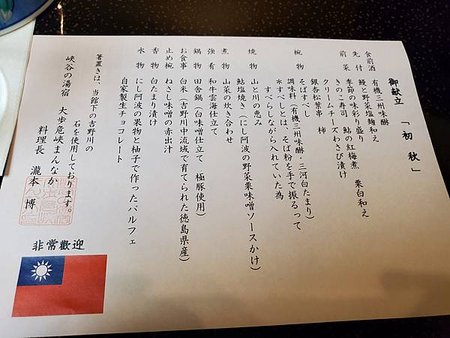 御献立 「 初 秋 」
食前酒 有機三州味醂
先付 鰻と野菜塩麹和え
前菜 季節の味彩り盛り 栗白和え
きのこ寿司 鮎の紅梅煮
クリームチーズわさび漬け
銀杏松葉串 柿
椀物 そばすべし
調味料（有機三州味醂・三河白たまり）
＊すべしとは、そば粉を手で撮るって
すべらしながら入れていた為
焼物 山と川の恵み
鮎塩焼き（にし阿波の野菜栗味噌ソースかけ）
煮物 山菜の炊き合わせ
強肴 和牛雲海仕立て
鍋物 田舎鍋（白味噌仕立て 極豚使用）
お食事 白米（吉野川中流域で育てられた徳島県産）
止め椀 ねさし味噌の赤出汁
香物 白たまり漬け
水物 にし阿波の果物と柚子で作ったパルフェ
自家製生チョコレート
箸置きは、当館下の吉野川の
石を使用しております。
峡谷の湯宿 大歩危峡まんなか
料理長 瀧本 博
非常歡迎